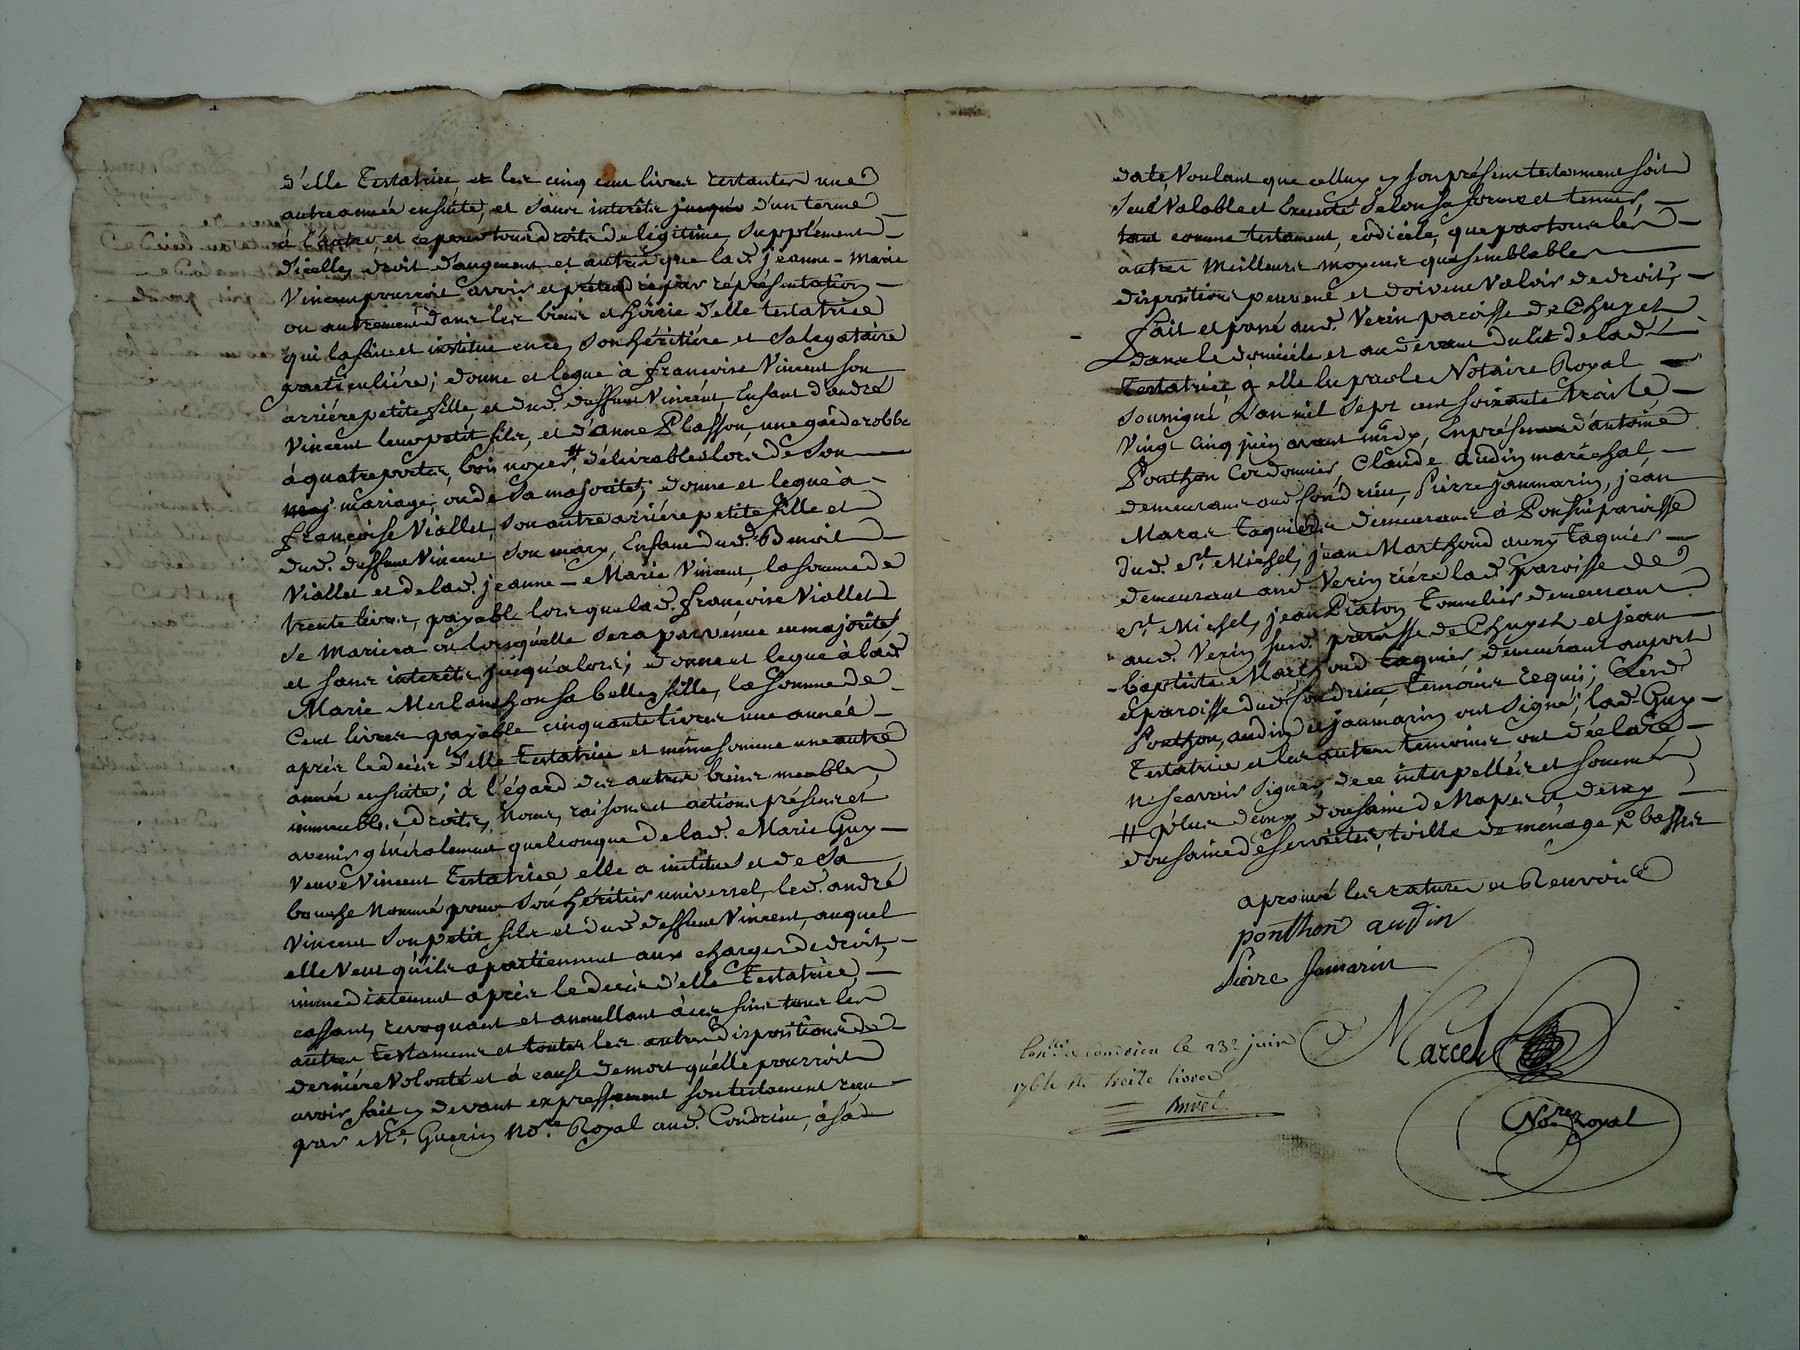 d'elle Testatrice, et les cinq cent livres restantes une
autre année ensuite, et sans interêts jusqué d'un terme
à l'autre, et ce pour tous droits de légitime, supplément
d'icelle, droit d'augment et autres que lad. jeanne-Marie
Vincent pourroit avoir et prétendre par réprésentation
ou autrement dans les biens et hoirie d'elle testatrice
qui la fait et institue en ce, son héritiére et sa legataire
particuliére; donne et legue à françoise Vincent son
arriére petite fille, et dud. deffunt Vincent, Enfant d'andré
Vincent leur petit fils, et d'anne Plasson, une garderobbe
à quatre portes, bois noyer, # délivrables lors de son
maj mariage, ou de sa majorité; donne et legue à
françoise Viallet, son autre arriére petite fille et
dud. deffunt Vincent son mary, Enfant dud. Benoit
Viallet et de lad. jeanne-Marie Vincent, la somme de
trente livres, payable lors que lad. françoise Viallet
se mariera ou lorsqu'elle sera parvénue en majorité
et sans interêts jusqu'alors; donne et legue à lad.
Marie Merlanchon sa belle fille, la somme de
Cent livres payable cinquante livres une année
aprés le decés d'elle Testatrice et même somme une autre
année ensuite; à l'égard des autres biens meubles,
immeubles droits, Noms, raisons et actions présens et
avenir généralement quelconque de lad. Marie Guy
Veuve Vincent Testatrice elle a institué et de sa
bouche Nommé pour son héritier universel, led. andré
Vincent son petit fils et dud. deffunt Vincent, auquel
elle Veut qu'ils apartiennent aux charges de droit,
immediatement aprés le decés d'elle Testatrice
cassant, revoquant et annullant à ces fins tous les
autres Testamens et toutes les autres dispositions de
derniére Volonté et à cause de mort qu'elle pourroit
avoir fait cy devant expressement son testament reçu
par Me. Guerin No.re Royal aud. Condrieu, à sa
date, Voulant que celluy cy son présent testament soit
seul Valable et Executé selon sa forme et teneur,
tant comme testament, codicile, que par tous les
autres Meilleurs moyens que semblables
dispositions peuvent et doivent Valoir de droit,
fait et passé aud. Verin paroisse de Chuyes
dans le domicile et au devant du lit de lad.
Testatrice, à elle lu par le Notaire Royal
soussigné, L'an mil sept cent soixante trois le
Vingt cinq juin avant midy, En présence d'antoine
Ponthon Cordonnier, Claude audin maréchal,
demeurans aud. Condrieu, Pierre Janmarin, jean
Maras taquier demeurans à Ponsin paroisse
dud. St. Michel, jean Marthoud aussy taquier
demeurant aud. Verin riére lad. paroisse de
St. Michel, jean Piaton Tonnelier demeurant
aud. Verin susd. paroisse de Chuyes et jean
baptiste Marthoud taquier, demeurant au port
et paroisse dud. Condrieu, temoins requis; Lesd.
Ponthon, audin et janmarin ont signé; lad. Guy
Testatrice et les autres temoins ont déclaré
ne sçavoir signer, de ce interpellés et sommés
# plus demy dousaine de Napes et demy
dousaine de serviettes, toille de ménage,
aprouvé les ratures et Renvois
ponthon audin
Pierre Jamarin
Marcel
No.re Royal
Con.lé a Condrieu le 23e juin